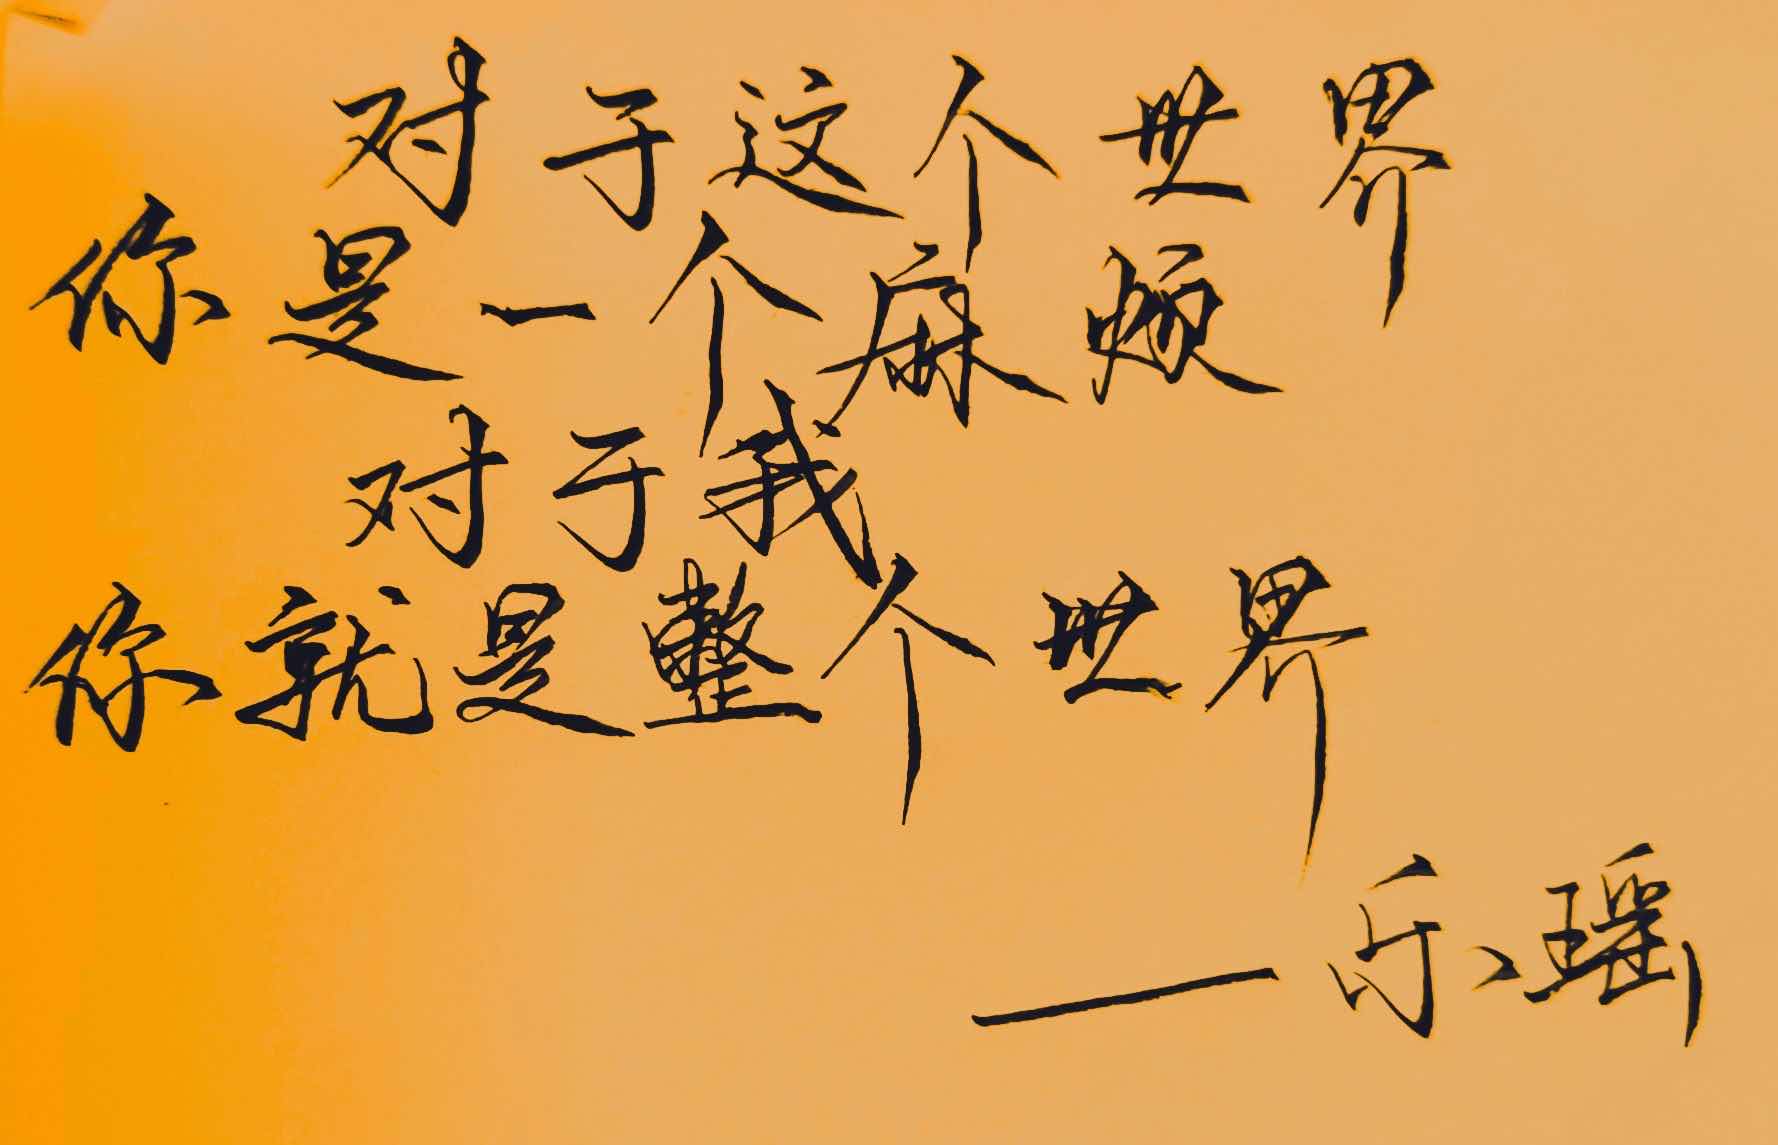 对于这个世界
你是一个麻烦
对于我
你就是整个世界
——乐瑶